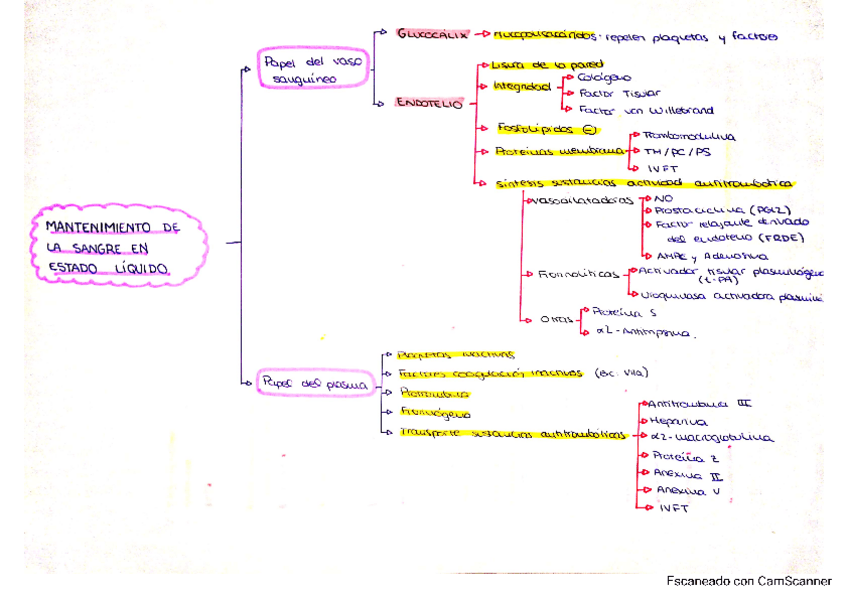 Papel del vaso
sanguíneo
GLUCOCÁLIX → Mucopolisacáridos: repelen plaquetas y factores
ENDOTELIO
Lisura de la pared
Integridad
Colágeno
Factor Tisular
Factor von Willebrand
Fosfolípidos (-)
Proteínas membrana
Trombomodulina
TM/PC/PS
IVFT
Síntesis sustancias actividad antitrombótica
Vasodilatadoras
NO
Prostaciclina (PGI2)
Factor relajante derivado
del endotelio (FRDE)
AMPc y Adenosina
Fibrinolíticas
Activador tisular plasminógeno
(t-PA)
Uroquinasa activadora
Otras
Proteína S
α2-Antitripsina.
MANTENIMIENTO DE
LA SANGRE EN
ESTADO LÍQUIDO.
Papel del plasma
Plaquetas inactivas
Factores coagulación inactivos (exc. VIIa)
Protrombina
Fibrinógeno
Transporte sustancias antitrombóticas
Antitrombina III
Heparina
α2-macroglobulina
Proteína Z
Anexina II
Anexina V
IVFT
Escaneado con CamScanner